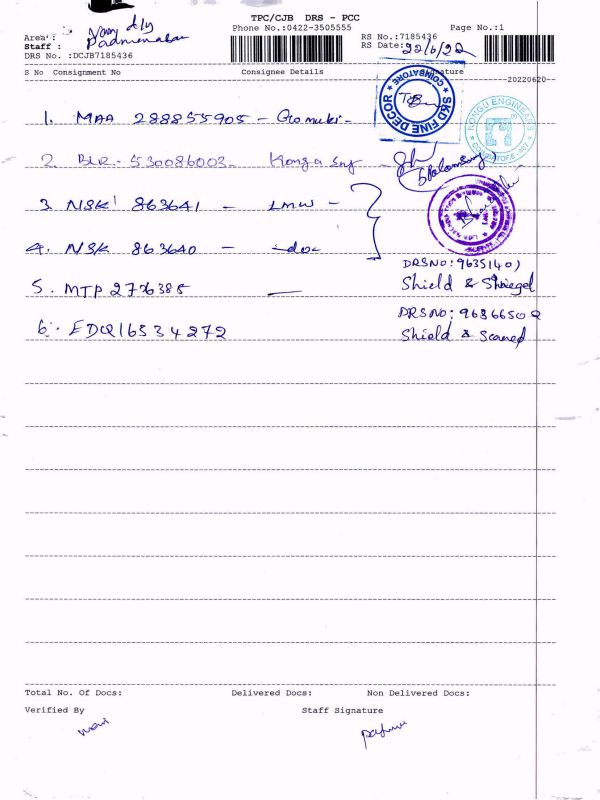 TPC/CJB DRS - PCC
Area : Nam dly
Phone No.:0422-3505555
RS No.:7185436
Page No.:1
Staff : Padmenaban
RS Date: 22/6/22
DRS No. :DCJB7185436
S No Consignment No Consignee Details Signature
20220620
1. MAA 288855905 - Gomuki -
S&D FINE DECOR ★ COIMBATORE ★
KONGU ENGINEERS
2. BLR - 530086003 - Konga
3. NSK 863641 - LMW -
4. NSK 863640 - -do-
DRSNO: 9635140)
5. MTP 2776385 —
Shield &
DRSNO: 96366502
6. EDQ16534272
Shield & Scaned
Total No. Of Docs: Delivered Docs: Non Delivered Docs:
Verified By Staff Signature